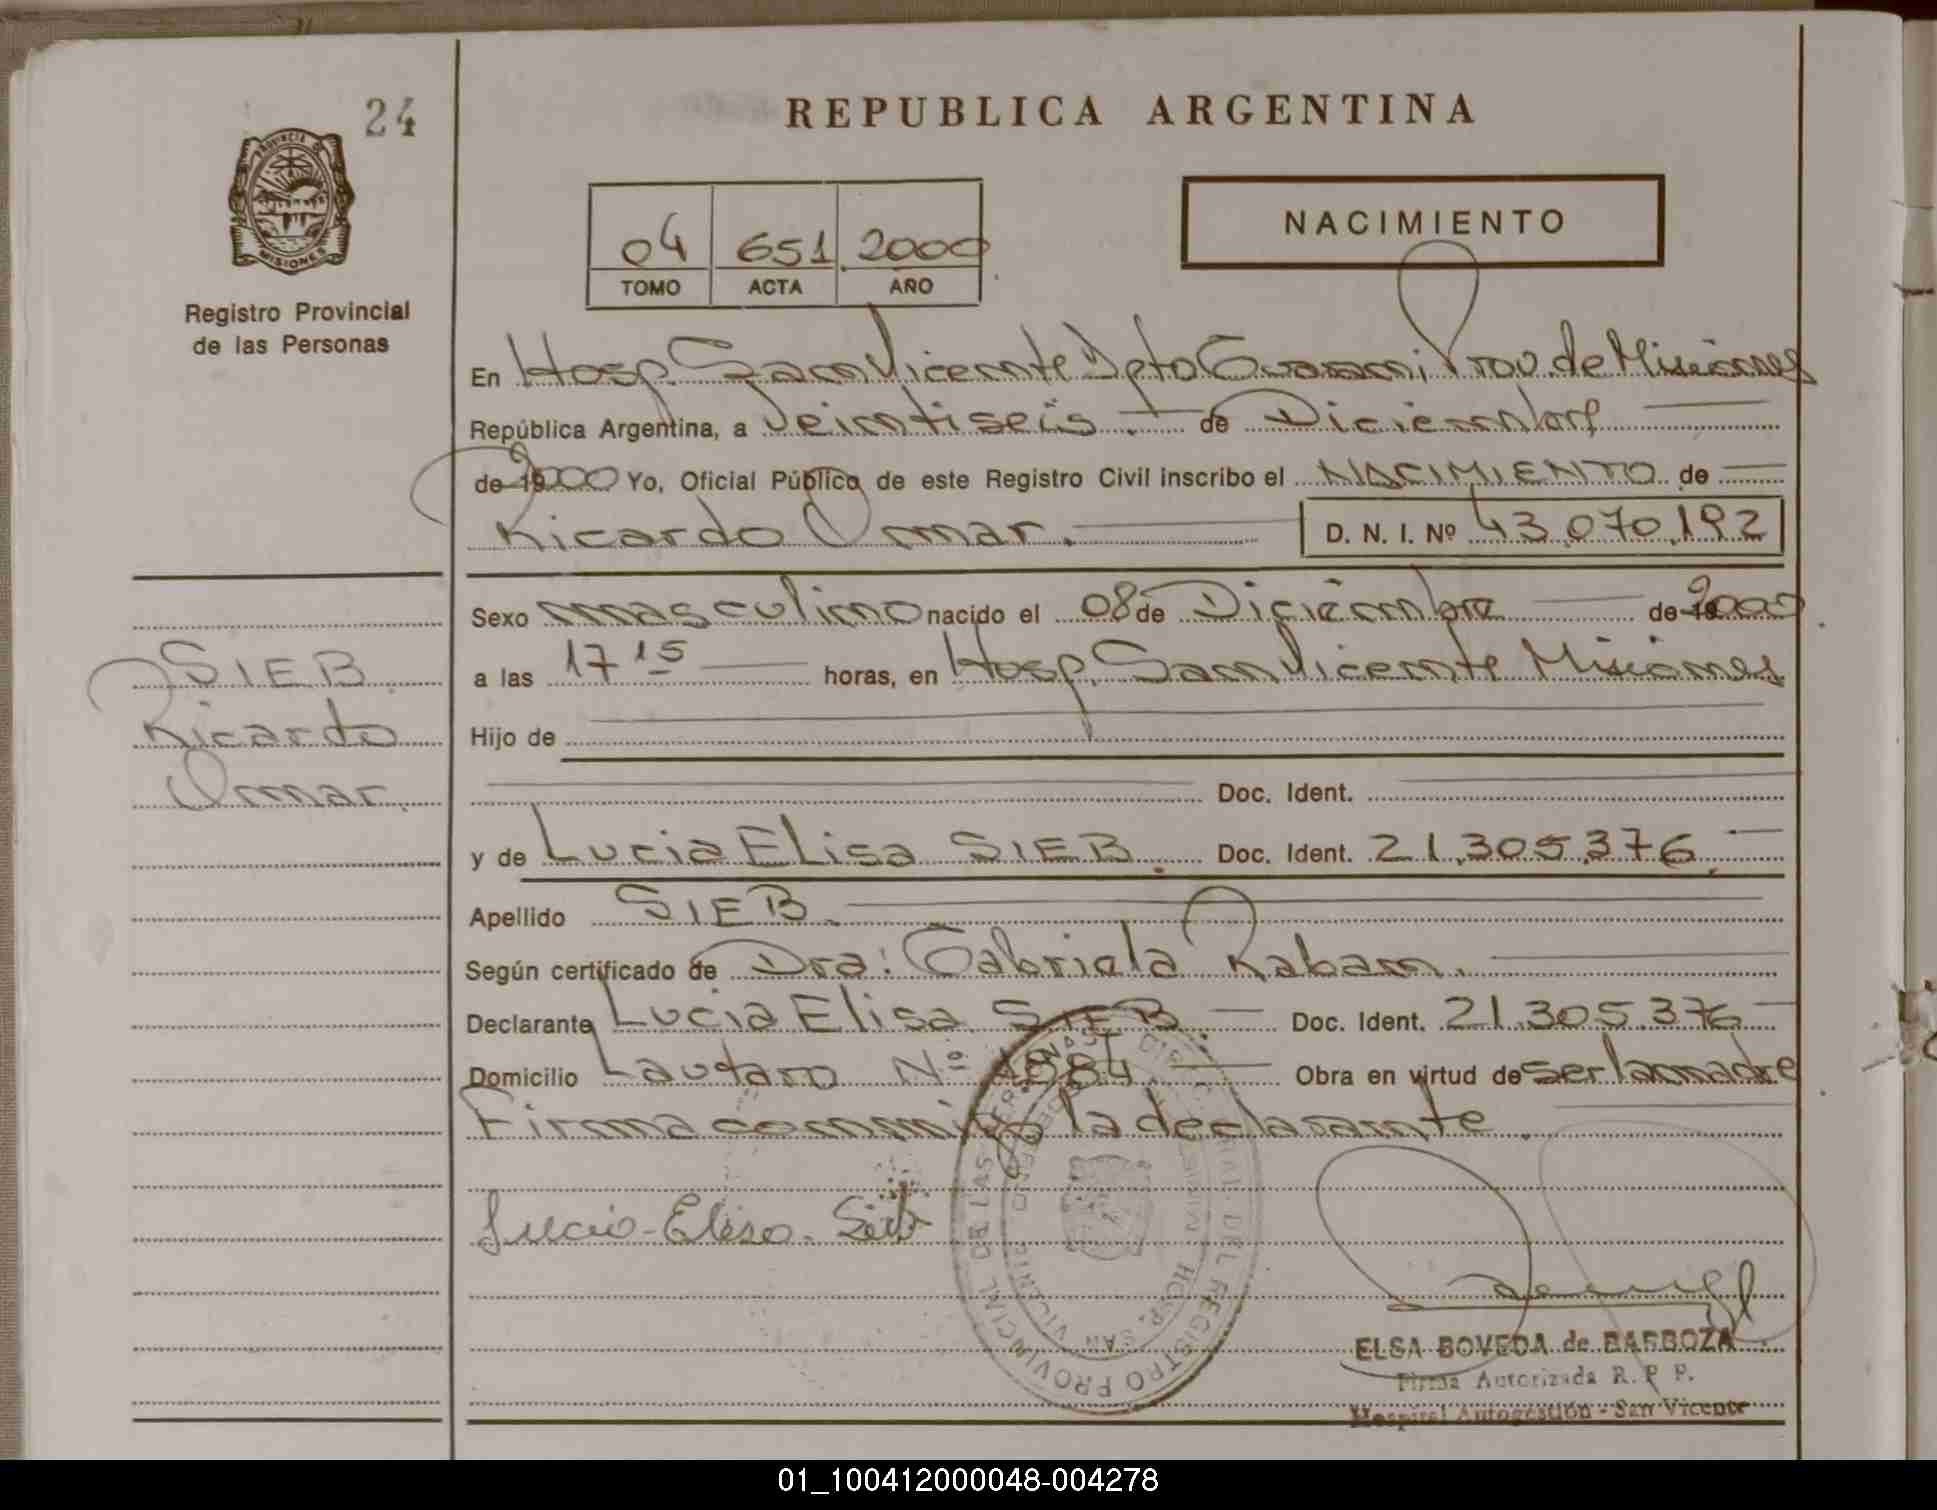 24
REPUBLICA ARGENTINA
PROVINCIA DE
MISIONES
Registro Provincial
de las Personas
04 651 2000
TOMO ACTA AÑO
NACIMIENTO
En Hosp. San Vicente Dpto Guarani Prov. de Misiones
República Argentina, a Veintiseis .— de Diciembre
de 19 2000 Yo, Oficial Público de este Registro Civil inscribo el NACIMIENTO de
Ricardo Omar. D. N. I. Nº 43.070.192
Sexo masculino nacido el 08 de Diciembre de 19 2000
a las 17 15 horas, en Hosp. San Vicente Misiones
Hijo de
Doc. Ident.
y de Lucia Elisa SIEB. Doc. Ident. 21.305.376.
Apellido SIEB.
Según certificado de Dra: Gabriela Raban.
Declarante Lucia Elisa SIEB. Doc. Ident. 21.305.376
Domicilio Lautaro Nº 1884 Obra en virtud de ser la madre
Firma conmigo la declarante.
SIEB.
Ricardo
Omar.
Lucia - Elisa - Sieb
REGISTRO PROVINCIAL DE LAS PERSONAS
HOSP. SAN VICENTE
ELSA BOVEDA de BARBOZA
Firma Autorizada R. P. P.
Hospital Autogestión - San Vicente
01_100412000048-004278